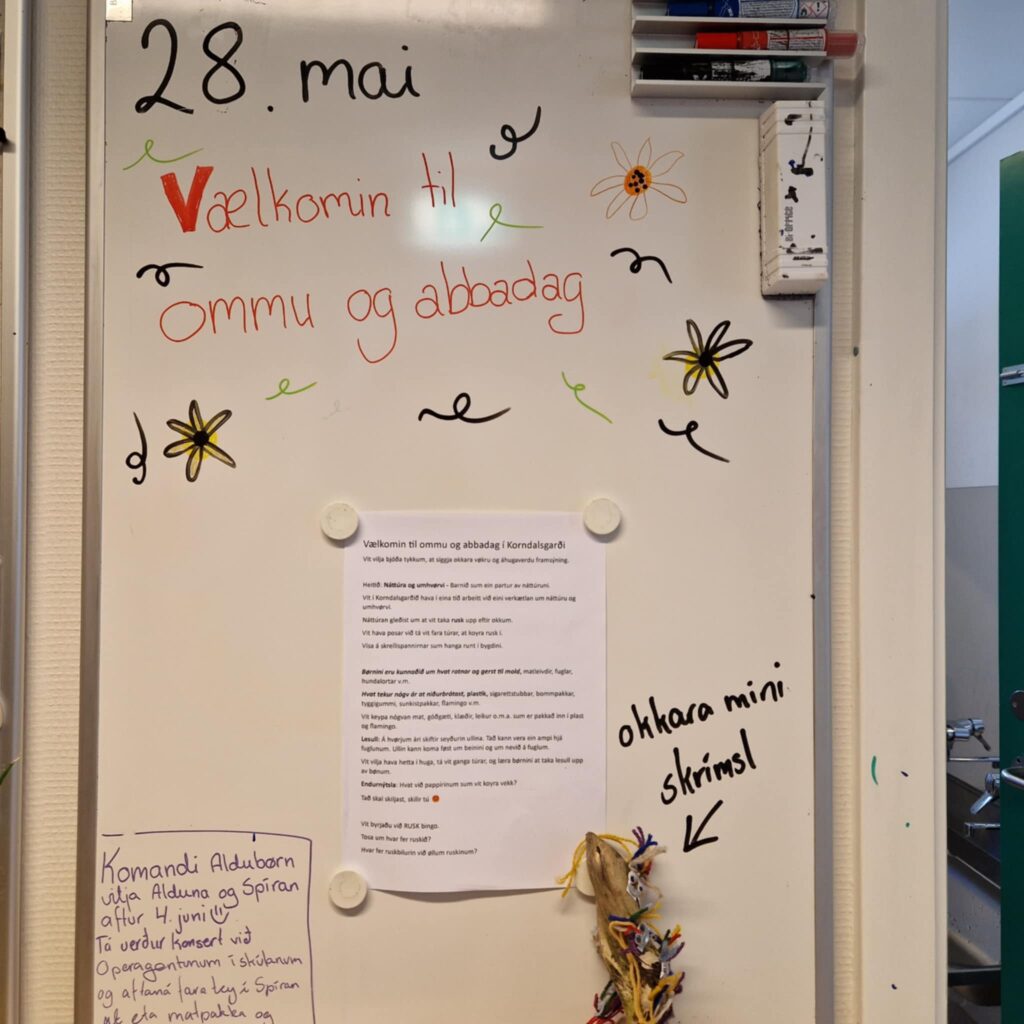 28. mai
Vælkomin til
ommu og abbadag
Vælkomin til ommu og abbadag í Korndalsgarði
Vit vilja bjóða tykkum, at síggja okkara vøkru og áhugaverdu framsýning.
Heitið: Náttúra og umhvørvi - Barnið sum ein partur av náttúruni.
Vit í Korndalsgarðið hava í eina tíð arbeitt við eini verkætlan um náttúru og
umhvørvi.
Náttúran gleðist um at vit taka rusk upp eftir okkum.
Vit hava posar við tá vit fara túrar, at koyra rusk í.
Vísa á skrellispannirnar sum hanga runt í bygdini.
Børnini eru kunnaðið um hvat rotnar og gerst til mold, matleivdir, fuglar,
hundalortar v.m.
Hvat tekur nógv ár at niðurbrótast, plastik, sigarettstubbar, bommpakkar,
tyggigummi, sunkistpakkar, flamingo v.m.
Vit keypa nógvan mat, góðgæti, klæðir, leikur o.m.a. sum er pakkað inn í plast
og flamingo.
Lesull: Á hvørjum ári skiftir seyðurin ullina. Tað kann vera ein ampi hjá
fuglunum. Ullin kann koma føst um beinini og um nevið á fuglum.
Vit vilja hava hetta í huga, tá vit ganga túrar, og læra børnini at taka lesull upp
av bønum.
Endurnýtsla: Hvat við pappírinum sum vit koyra vekk?
Tað skal skiljast, skilir tú
Vit byrjaðu við RUSK bingo.
Tosa um hvar fer ruskið?
Hvar fer ruskbilurin við øllum ruskinum?
okkara mini
skrímsl
Komandi Aldubørn
vitja Alduna og Spíran
aftur 4. juni
Tá verður konsert við
í skúlanum
og aftaná fara tey í Spíran
at eta matpakka og